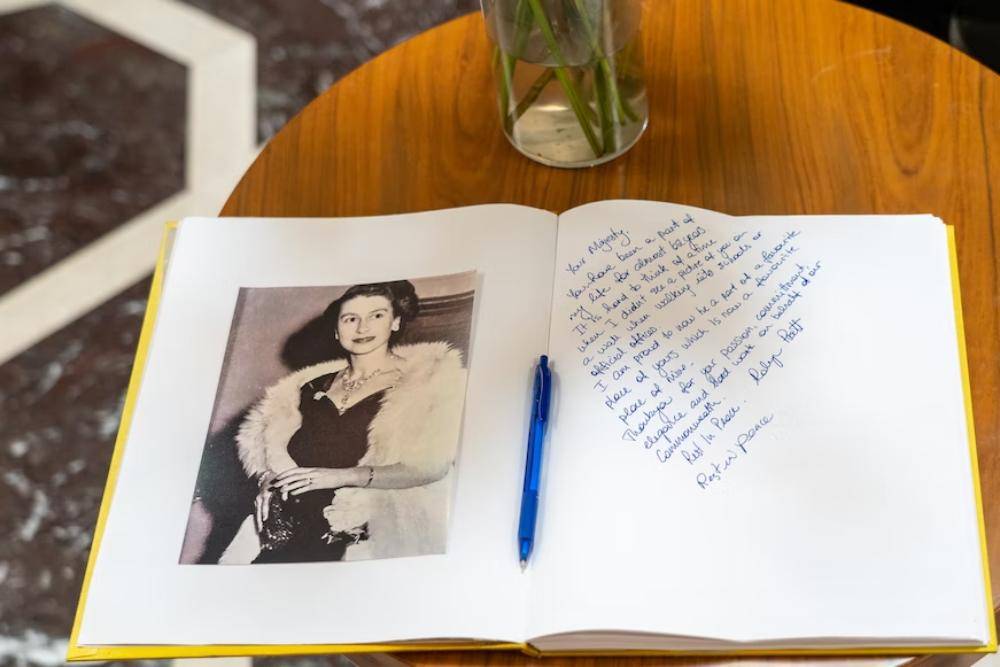 Your Majesty.
You have been a part of
my life for almost years
It is hard to think of a time
when I didn't see a picture of you on
a wall when walking into schools or
official offices.
I am proud to now be a part of a favourite
place of yours which is now a favourite
place of mine.
Thankyou for your passion, commitment,
elegance and hard work on behalf of our
Commonwealth. Robyn
Rest In Peace.
Rest in Peace